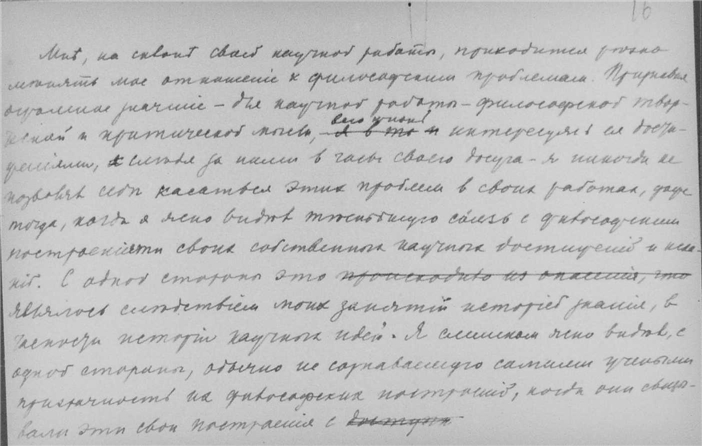 16
Мнѣ, на склонѣ своей научной работы, приходится резко
менять мое отношеніе к философским проблемам. Признавая
огромное значеніе – для научной работы – философской твор-
ческой и критической мысли, всю жизнь интересуясь ее дости-
женіями, следя за ними в часы своего досуга – я никогда не
позволял себѣ касаться этих проблем в своих работах, даже
тогда, когда я ясно видѣл тѣснейшую связь с философскими
построеніями своих собственных научных достиженій и иска-
ній. С одной стороны это происходило из опасения, что
являлось слѣдствіем моих занятій исторіей знанія, в
частности исторіи научных идей. Я слишком ясно видѣл, с
одной стороны, обычно не сознаваемую самими учеными
призрачность их философских построеній, когда они связы-
вали эти свои построения с